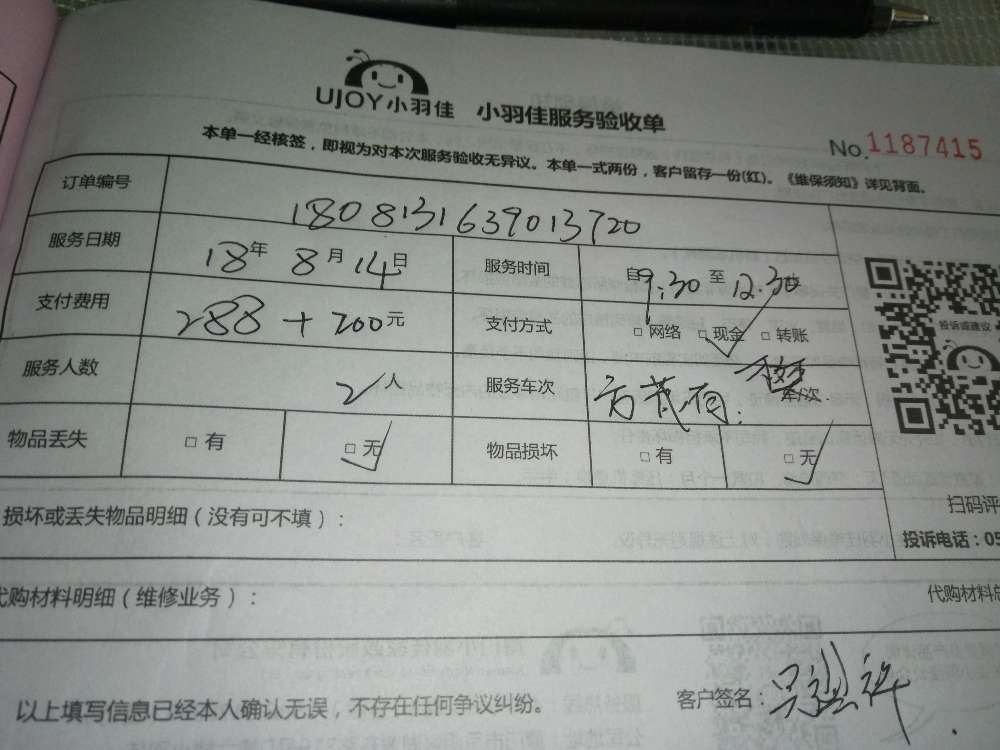 UJOY小羽佳 小羽佳服务验收单
No.1187415
本单一经核签，即视为对本次服务验收无异议。本单一式两份，客户留存一份(红)。《维保须知》详见背面。
订单编号 1808131639013720
服务日期 18年 8月 14日 服务时间 自9:30至12:30
支付费用 288+200元 支付方式 □网络 □现金 □转账
服务人数 2人 服务车次 车/次
物品丢失 □有 □无 物品损坏 □有 □无
投诉或建议
损坏或丢失物品明细（没有可不填）：
扫码评
投诉电话：05
代购材料明细（维修业务）： 代购材料总
以上填写信息已经本人确认无误，不存在任何争议纠纷。 客户签名：